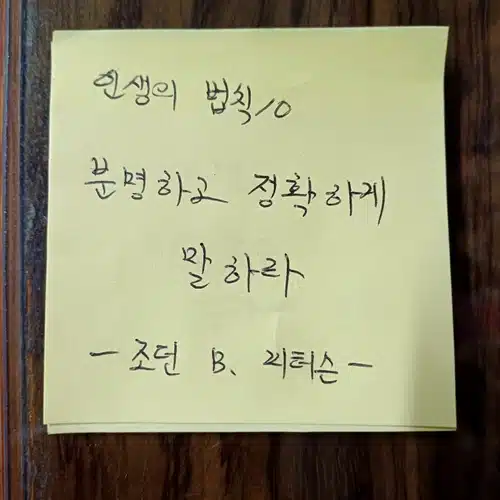 인생의 법칙10
분명하고 정확하게
말하라
- 조던 B. 피터슨 -